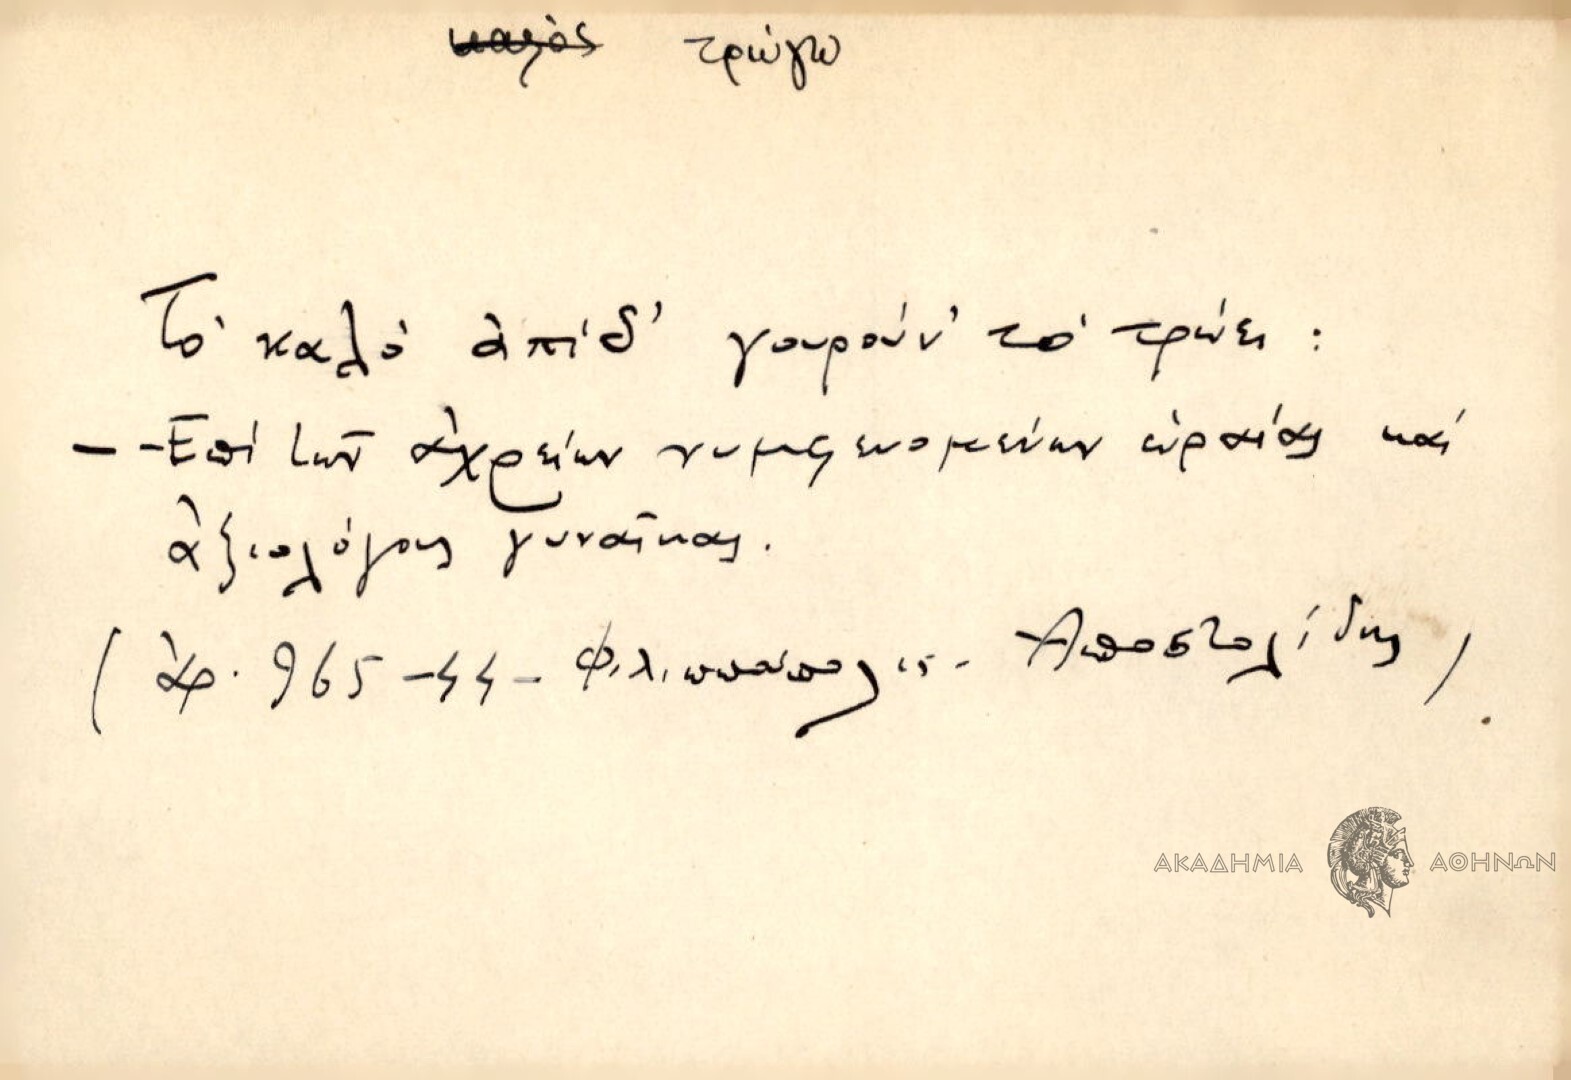 καλὸς τρώγω
Τὸ καλὸ ἀπίδ' γουρούν' τὸ τρώει :
— -Ἐπὶ τῶν ἀχρείων νυμφευομένων ὡραίας καὶ
ἀξιολόγους γυναῖκας.
( ἀρ. 965 - 44 - Φιλιππούπολις - Ἀποστολίδης )
ΑΚΑΔΗΜΙΑ ΑΘΗΝΩΝ